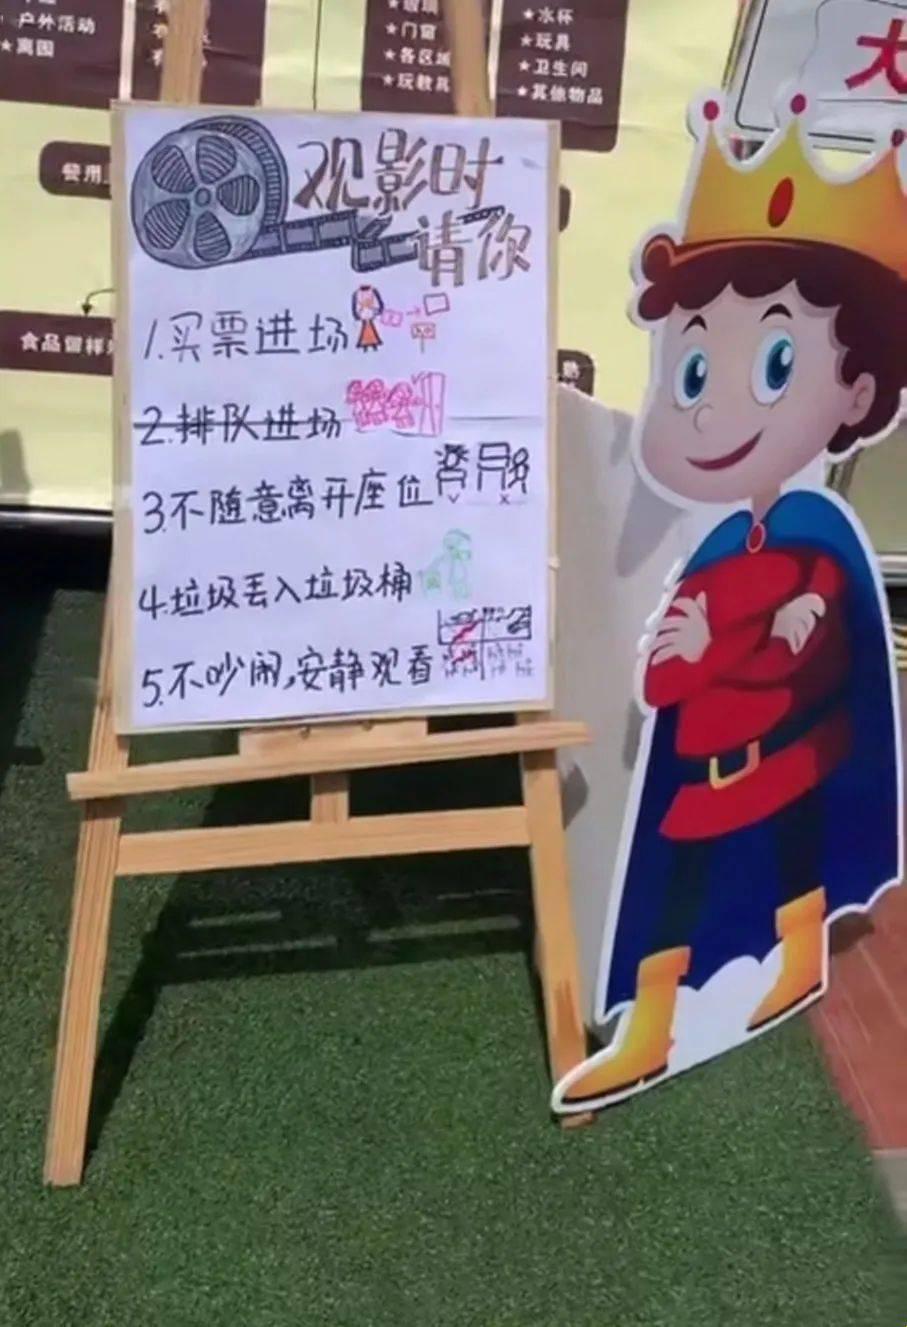 户外活动
★离园
★门窗
★各区域
★玩教具
★水杯
★玩具
★卫生间
★其他物品
大
餐用
食品留样
观影时
请你
1.买票进场
2.排队进场
3.不随意离开座位
4.垃圾丢入垃圾桶
5.不吵闹,安静观看